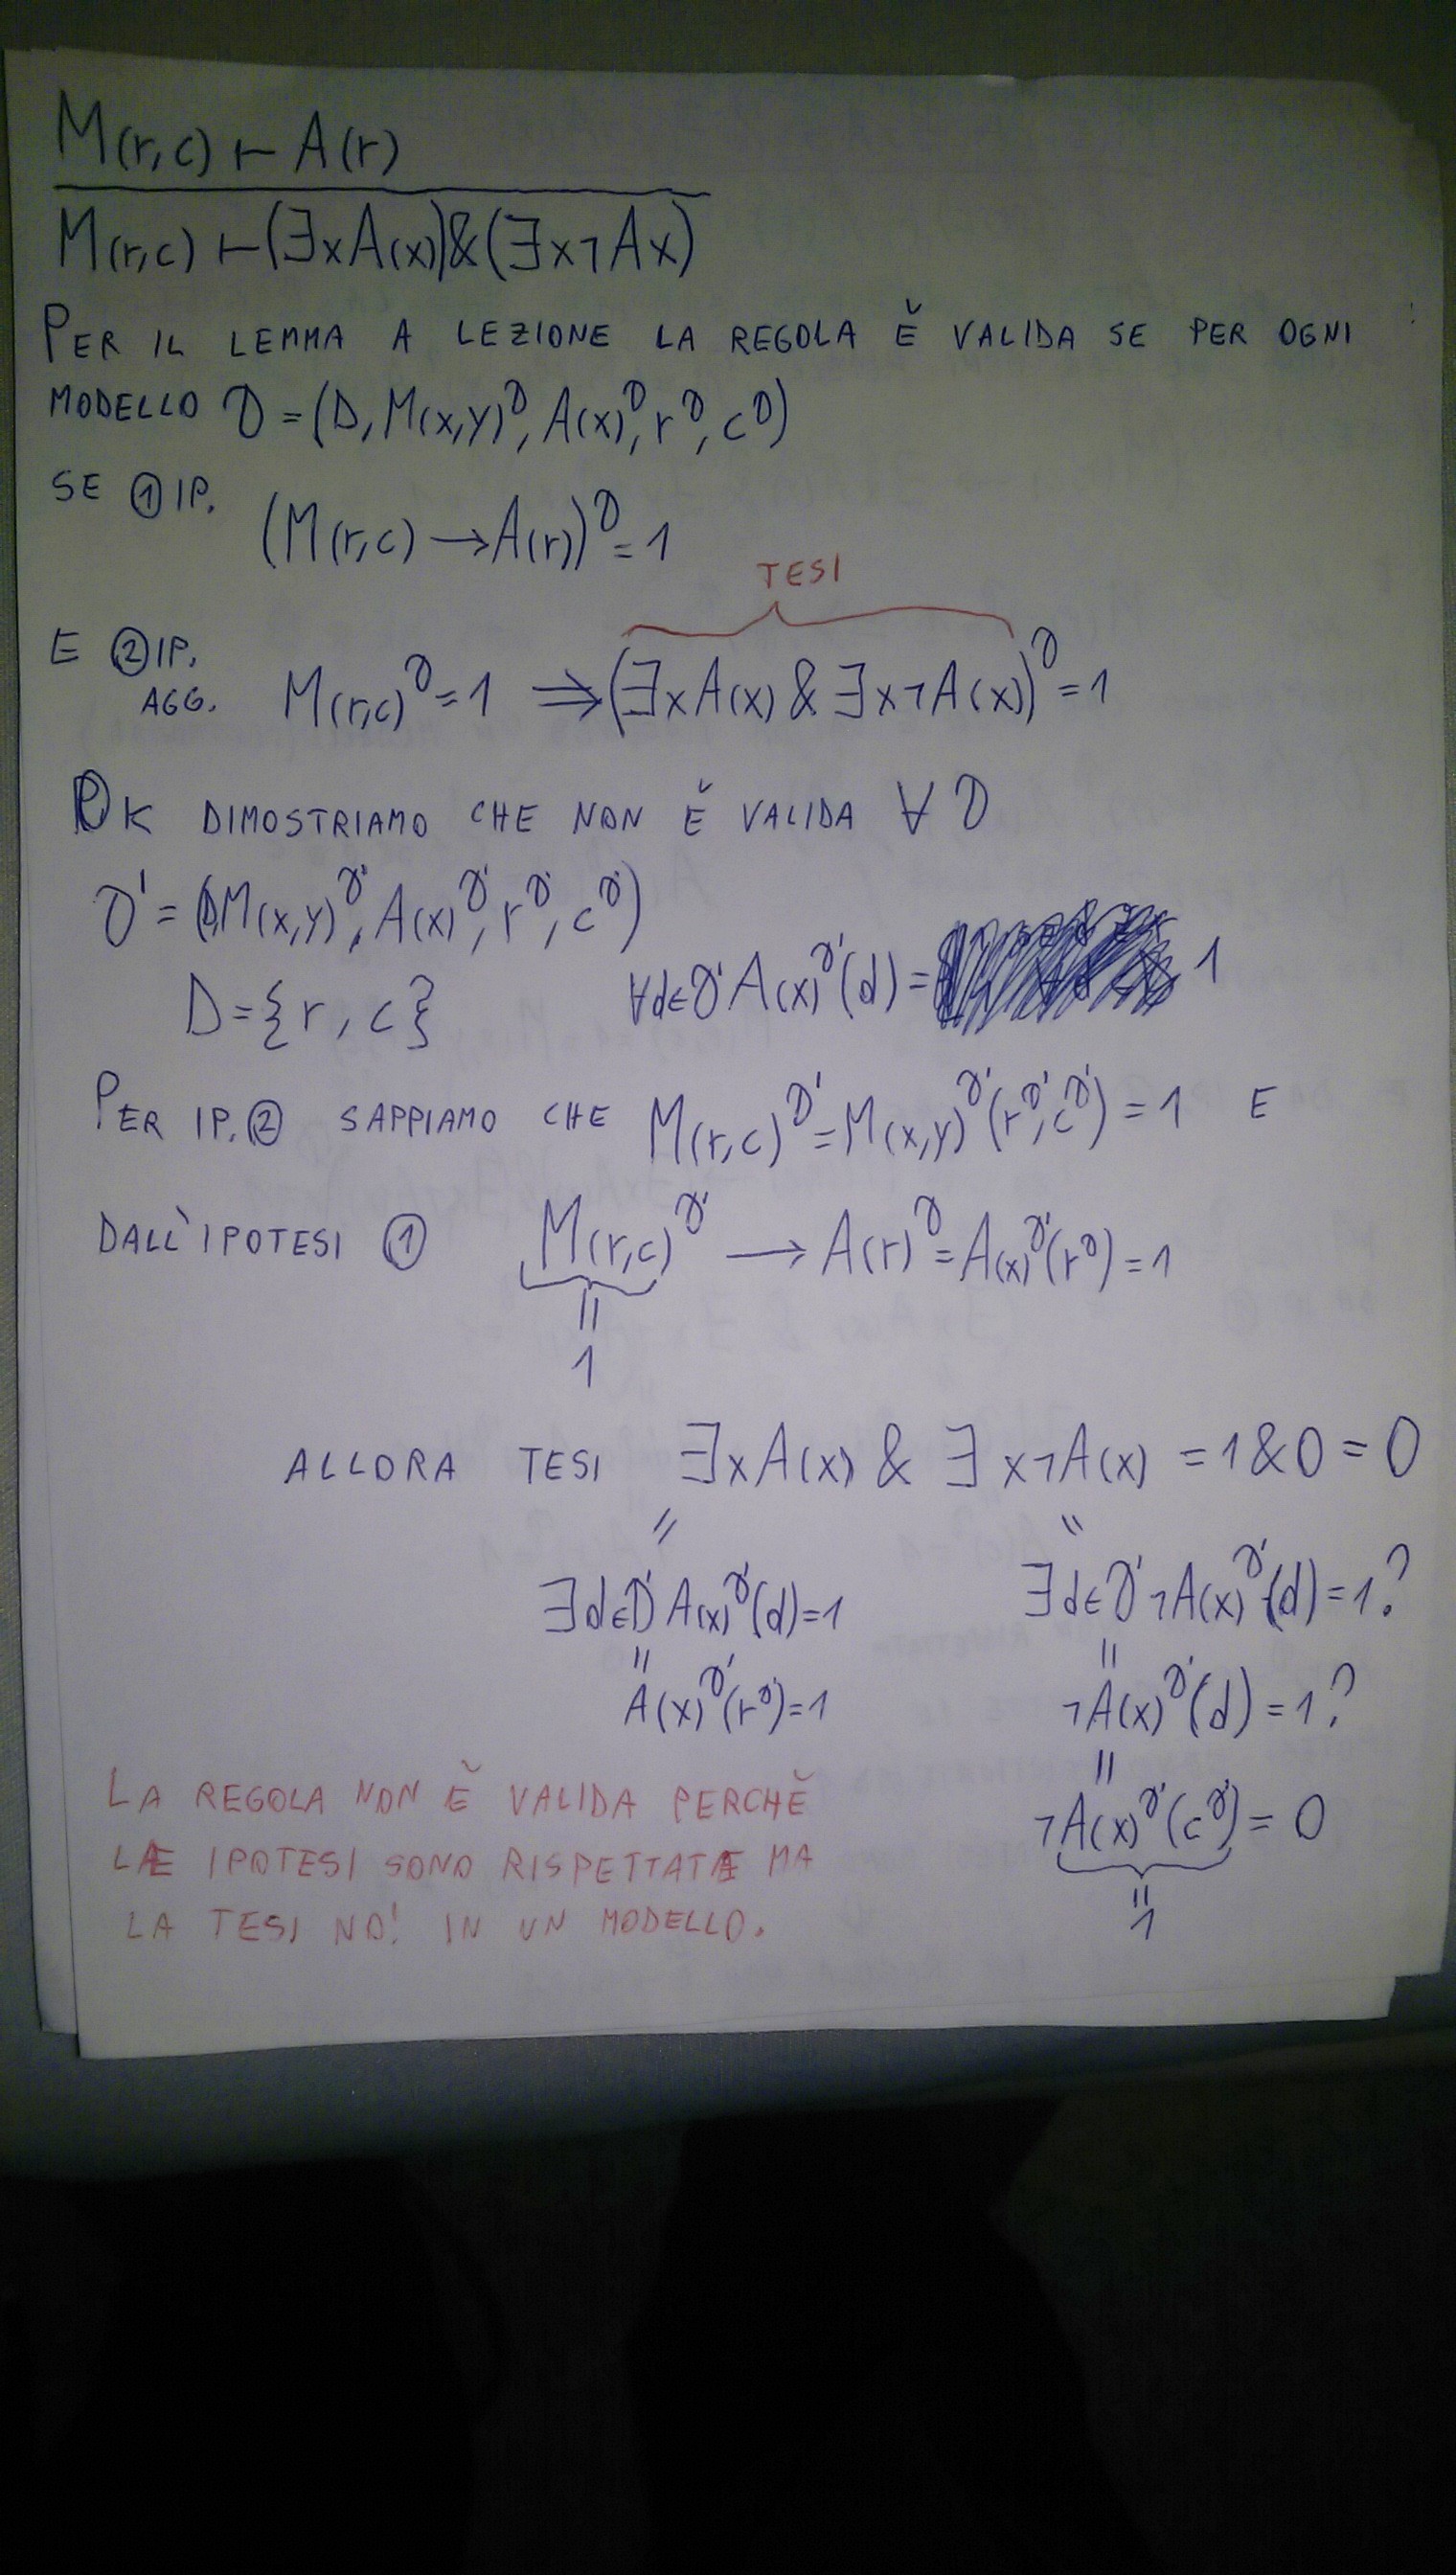 M(r,c) ⊢ A(r)
M(r,c) ⊢ (∃xA(x))&(∃x¬Ax)
PER IL LEMMA A LEZIONE LA REGOLA È VALIDA SE PER OGNI
MODELLO D = (D, M(x,y)^D, A(x)^D, r^D, c^D)
SE ① IP. (M(r,c) → A(r))^D = 1
TESI
E ② IP. AGG. M(r,c)^D = 1 ⇒ (∃xA(x) & ∃x¬A(x))^D = 1
OK DIMOSTRIAMO CHE NON È VALIDA ∀ D
D' = (D, M(x,y)^D', A(x)^D', r^D', c^D')
D = {r, c} ∀d∈D' A(x)^D'(d) = 1
PER IP. ② SAPPIAMO CHE M(r,c)^D' = M(x,y)^D'(r^D', c^D') = 1 E
DALL'IPOTESI ① M(r,c)^D' → A(r)^D = A(x)^D'(r^D) = 1
=
1
ALLORA TESI ∃xA(x) & ∃x¬A(x) = 1&0 = 0
= =
∃d∈D' A(x)^D'(d)=1 ∃d∈D' ¬A(x)^D'(d)=1?
= =
A(x)^D'(r^D')=1 ¬A(x)^D'(d) = 1?
=
¬A(x)^D'(c^D') = 0
=
1
LA REGOLA NON È VALIDA PERCHÈ
LE IPOTESI SONO RISPETTATE MA
LA TESI NO! IN UN MODELLO.